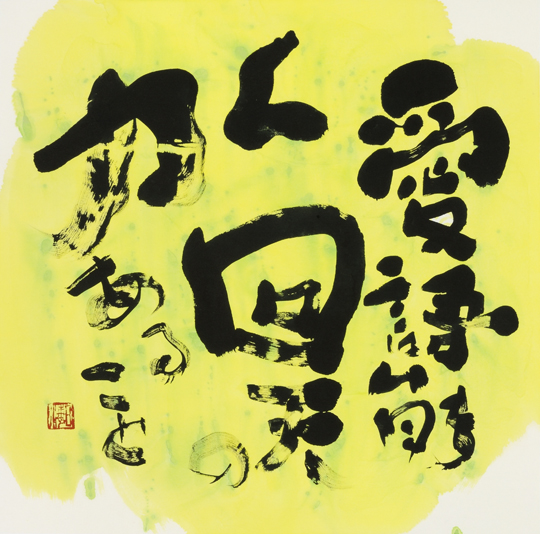 愛語能
く回天の
力あることを